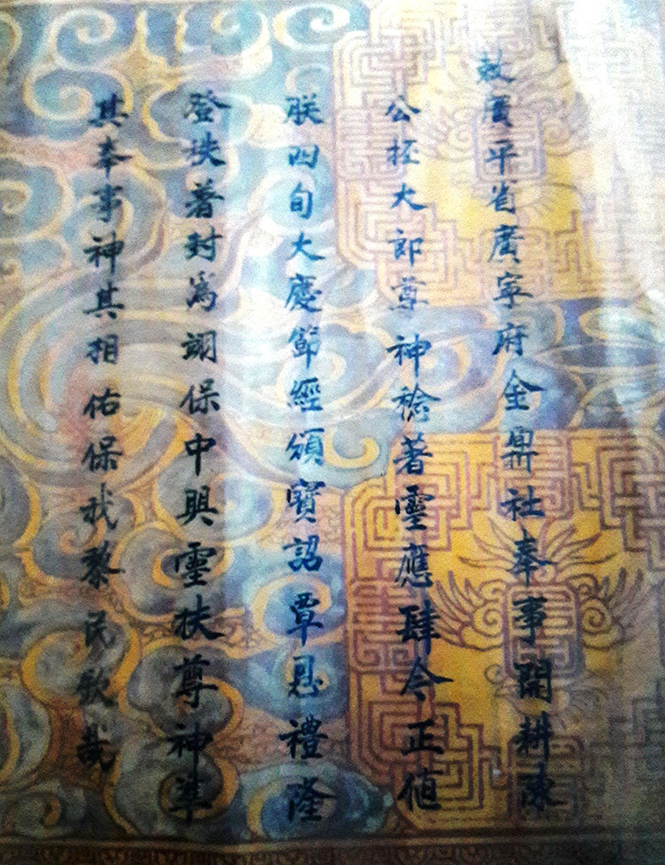 敕廣平省廣寜府金鼎社奉事開耕陳
公𢪱大郎尊神稔著靈應肆今正值
朕四旬大慶節經頒寶詔覃恩禮隆
登秩着封爲翊保中興靈扶尊神準
其奉事神其相佑保我黎民欽哉